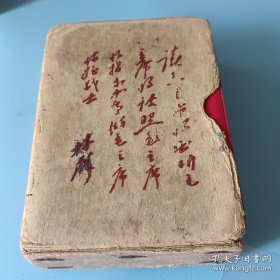 读毛主席的书听毛
主席的话照毛主席
的指示办事做毛主席
的好战士
林彪
孔夫子旧书网